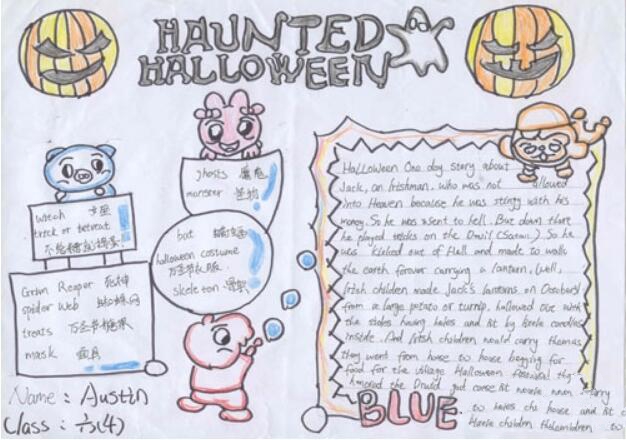 HAUNTED
HALLOWEEN
witch 女巫
trick or tetreat
不给糖就捣蛋.
Grim Reaper 死神
spider web 蜘蛛网
treats 万圣节糖果
mask 面具
ghosts 魔鬼
monster 怪物
bat 蝙蝠
halloween costume
万圣节衣服
skeleton 骨骸
Name : Austin
Class : 六(4)
Halloween One day story about
Jack, an Irishman, who was not allowed
into Heaven because he was stingy with his
money. So he was sent to hell. But down there
he played tricks on the Devil (Satan). So he
was kicked out of Hell and made to walk
the earth forever carrying a lantern. Well,
Irish children made Jack's lanterns on October31
from a large potato or turnip, hollowed out with
the sides having holes and lit by little candles
inside. And Irish children would carry them as
they went from house to house begging for
food for the village Halloween festival that
honored the Druid god
to house
children
BLUE